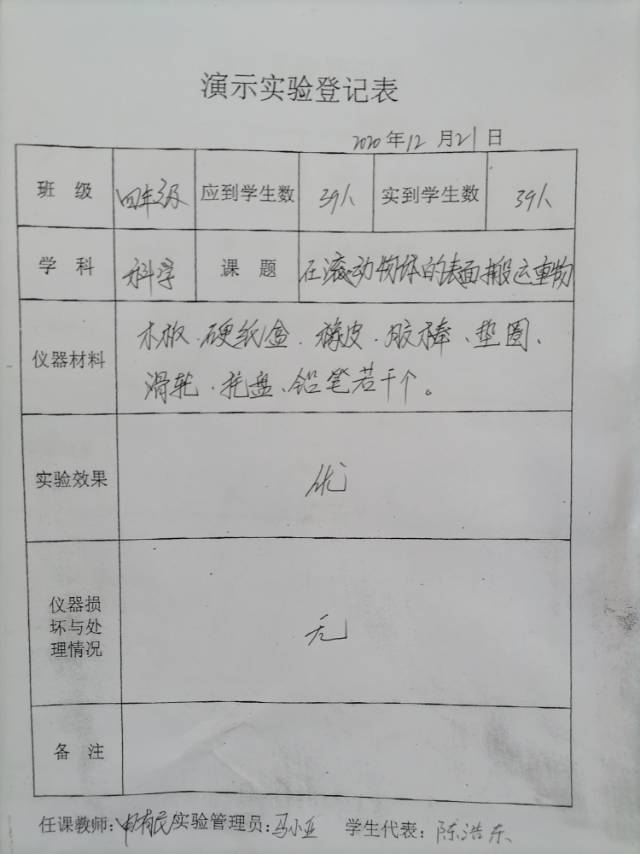 演示实验登记表
2020年12月21日
班 级 四年级 应到学生数 39人 实到学生数 39人
学 科 科学 课 题 在滚动物体的表面搬运重物
仪器材料 木板、硬纸盒、橡皮、胶棒、垫圈、
滑轮、托盘、铅笔若干个。
实验效果 优
仪器损
坏与处
理情况
无
备 注
任课教师:申有民 实验管理员:马小亚 学生代表:陈浩东